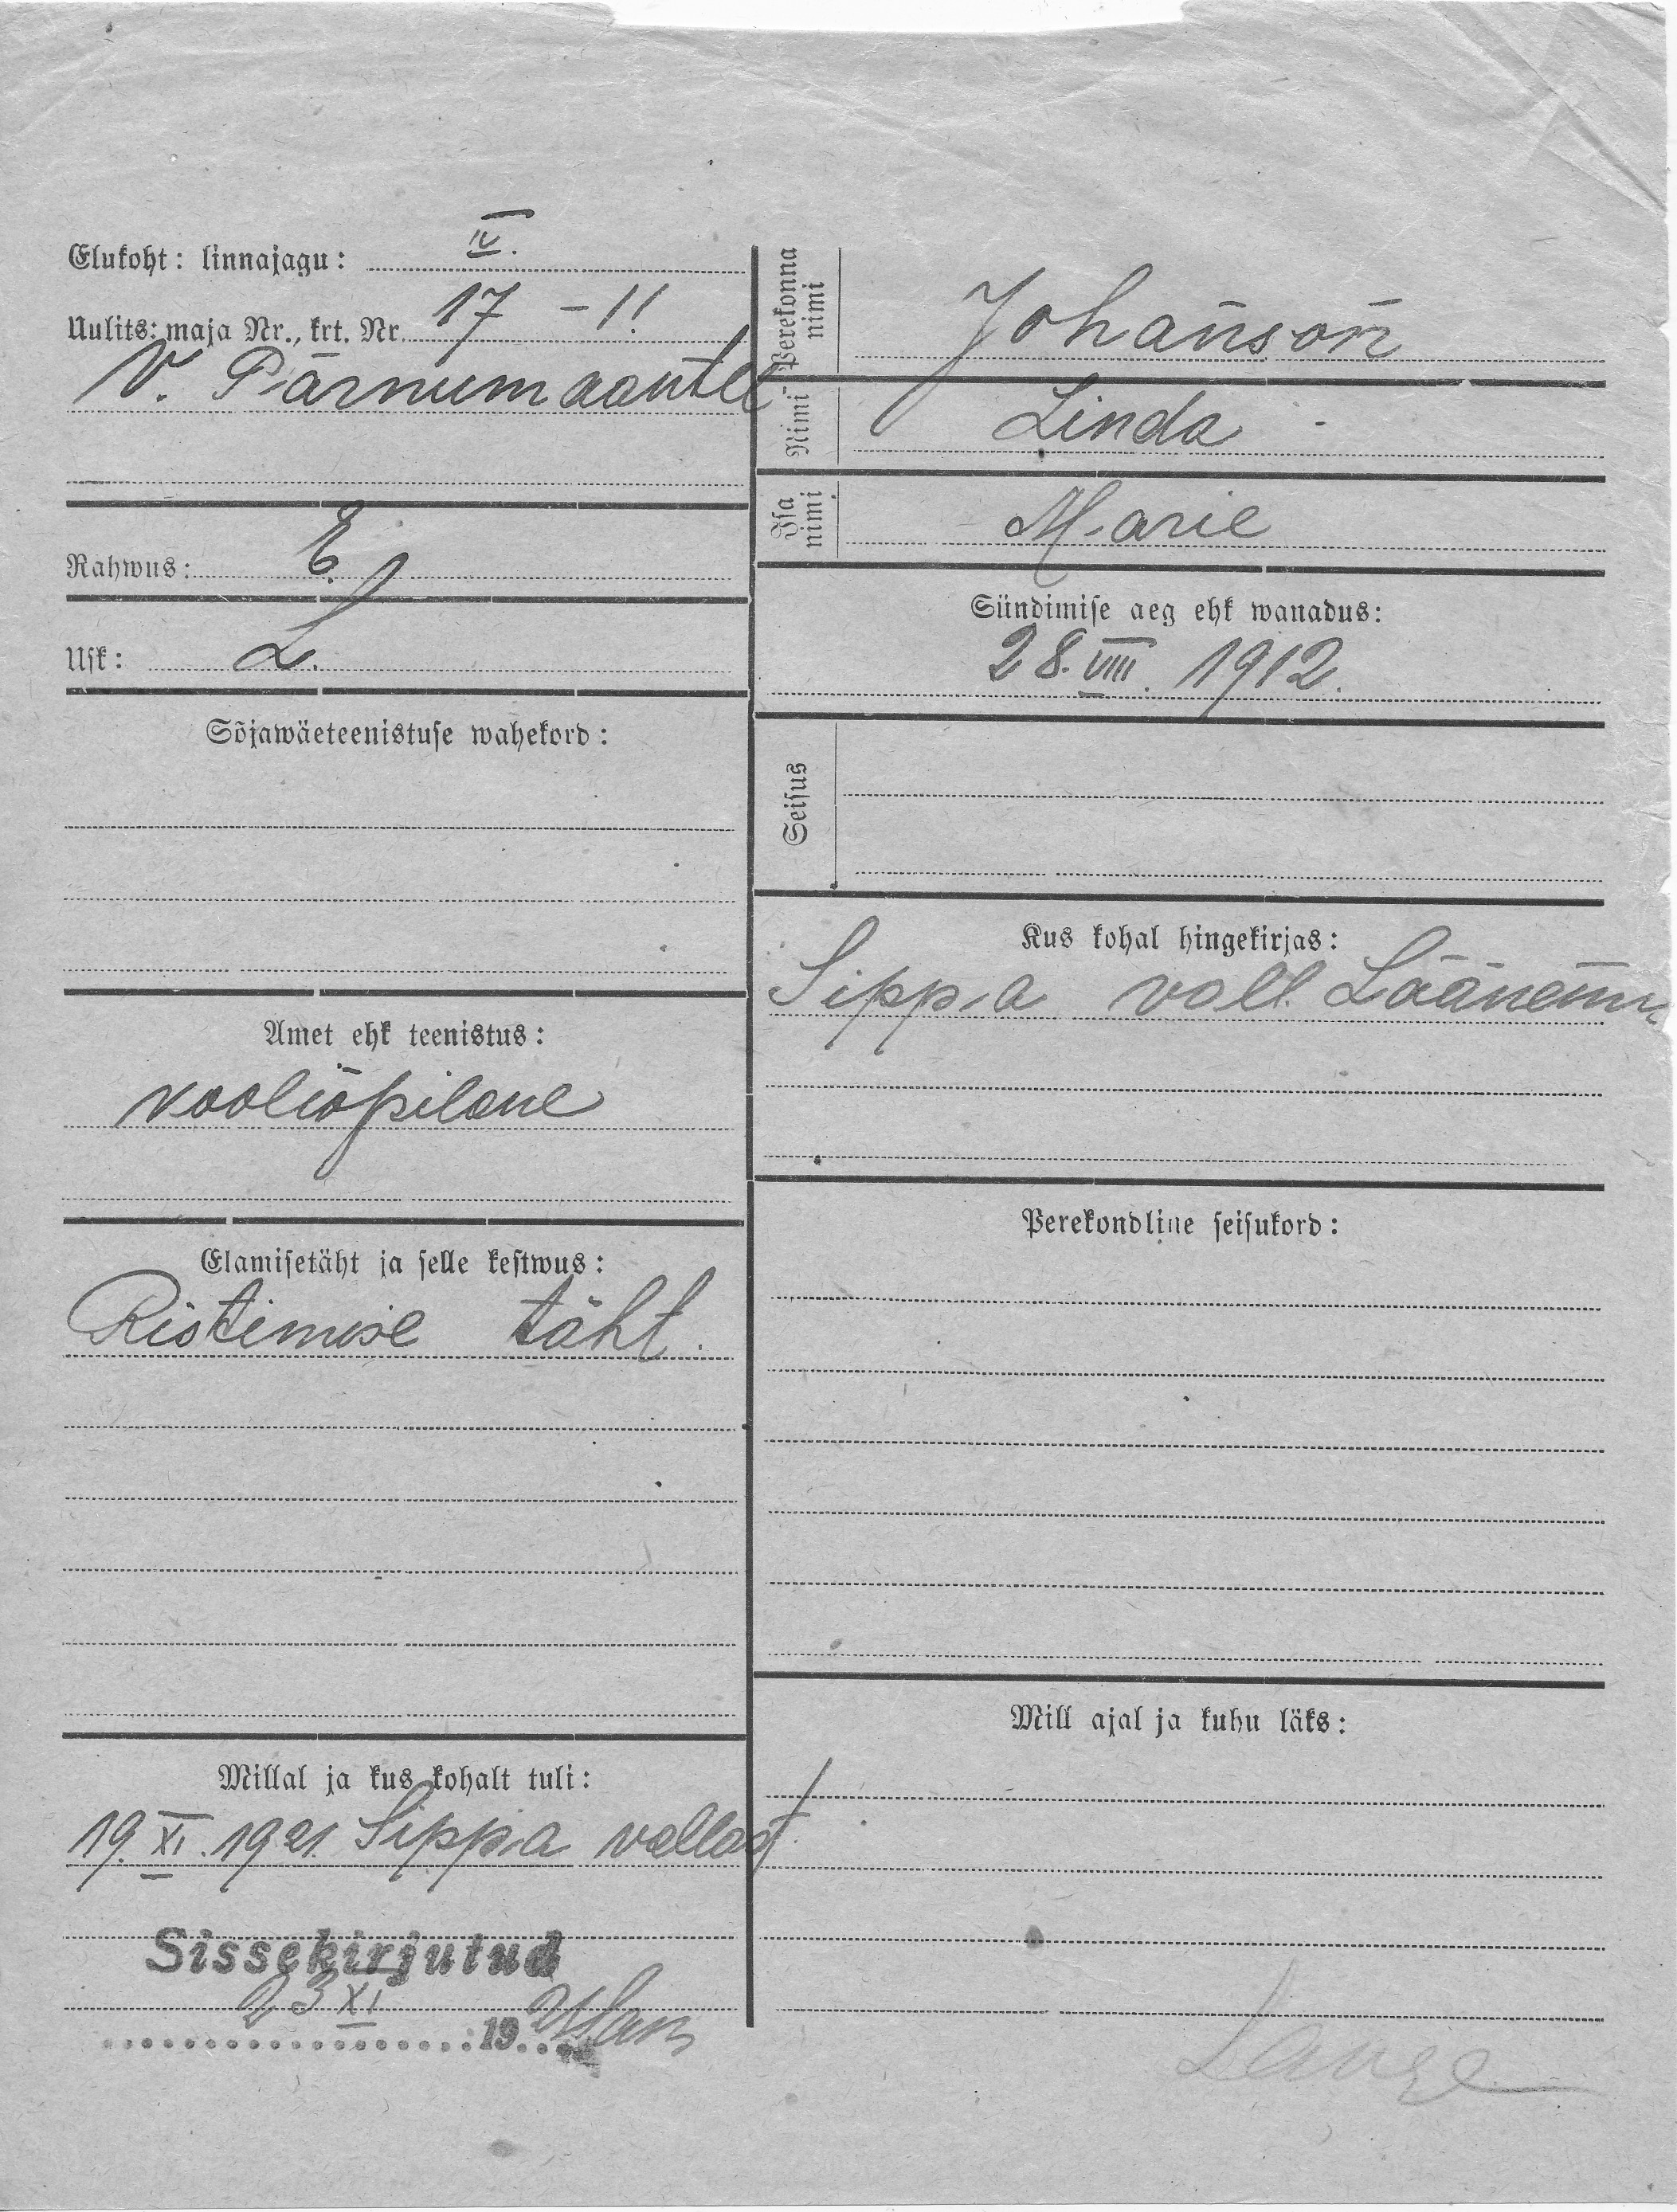 Elukoht: linnajagu: IV.
Uulits: maja Nr., krt. Nr. 17 – 11
V. Pärnumaantee
Rahwus: E.
Usk: L.
Sõjawäeteenistuse wahekord:
Amet ehk teenistus:
kooliõpilane
Elamisetäht ja selle kestwus:
Ristimise täht.
Millal ja kus kohalt tuli:
19. XI. 1921. Sippa vallast
Sissekirjutud
23 XI
19
Perekonna nimi Johanson
Nimi Linda
Isa nimi Marie
Sündimise aeg ehk wanadus:
28. VIII. 1912.
Seisus
Kus kohal hingekirjas:
Sippa vall. Läänem
Perekondline seisukord:
Mill ajal ja kuhu läks:
Lange